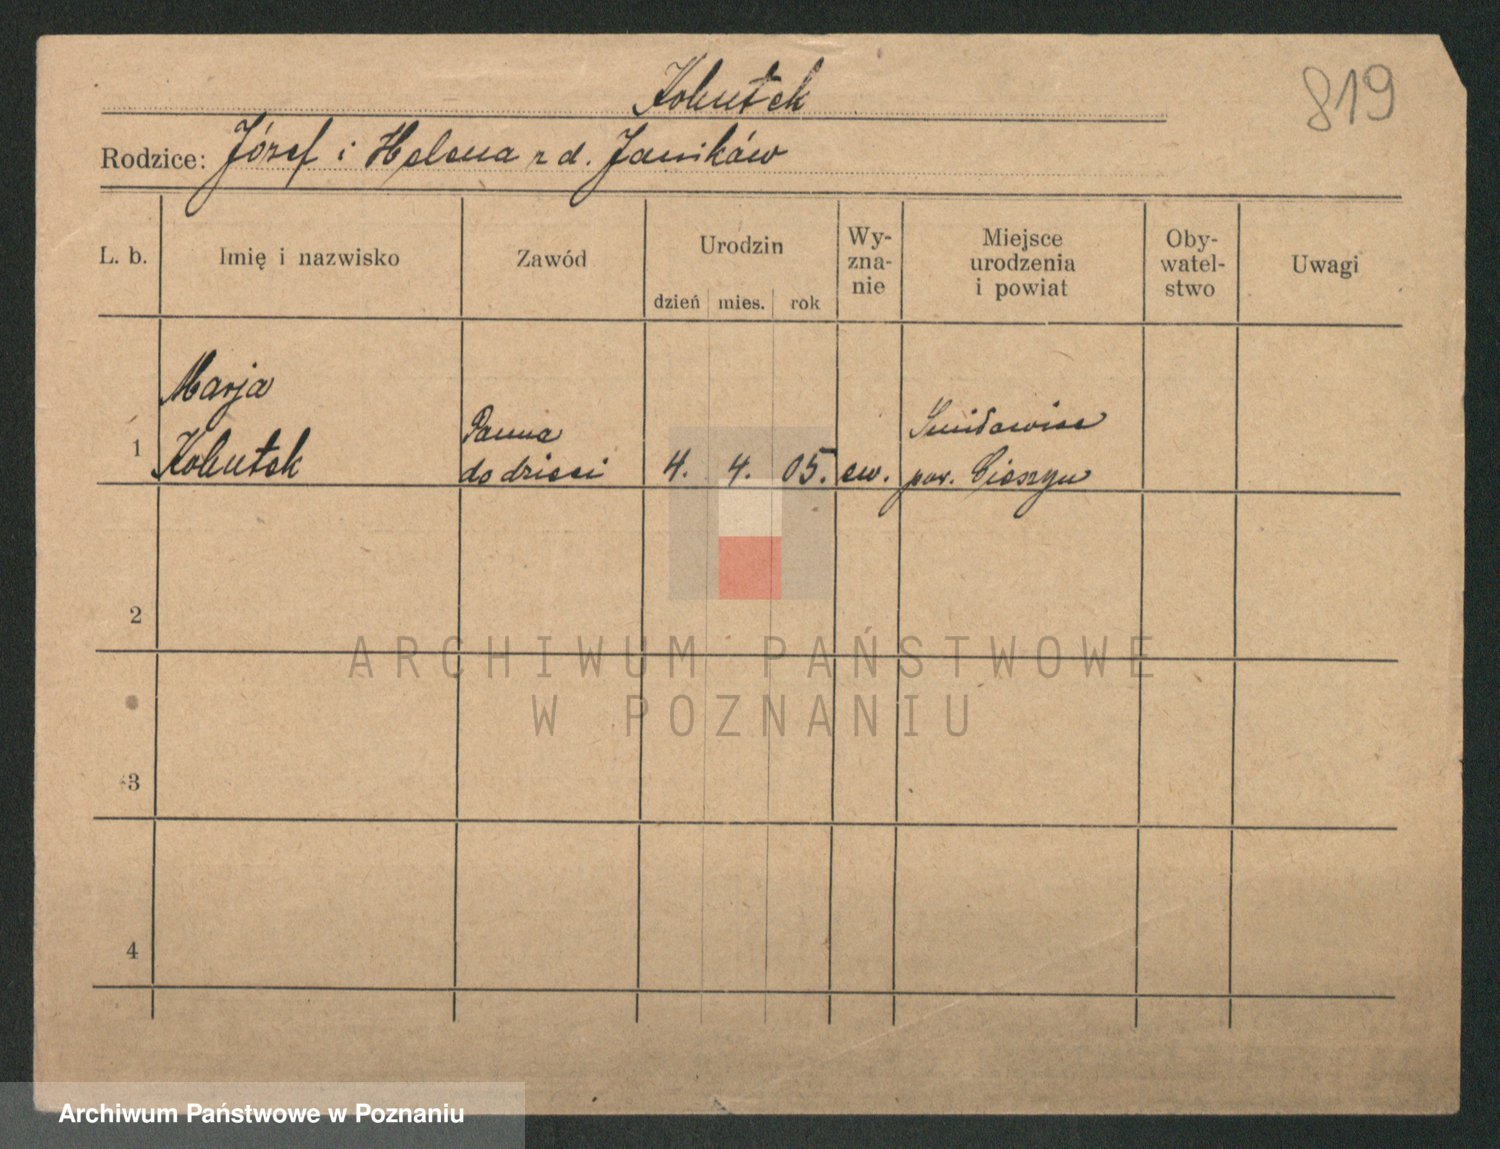 Kohutek
819
Rodzice: Józef i Helena z d. Janików
L. b.
Imię i nazwisko
Zawód
Urodzin
dzień mies. rok
Wy-
zna-
nie
Miejsce
urodzenia
i powiat
Oby-
watel-
stwo
Uwagi
Marja
1 Kohutek
Panna
do dzieci
4. 4. 05. ew.
pow. Cieszyn
2
3
4
ARCHIWUM PAŃSTWOWE
W POZNANIU
Archiwum Państwowe w Poznaniu